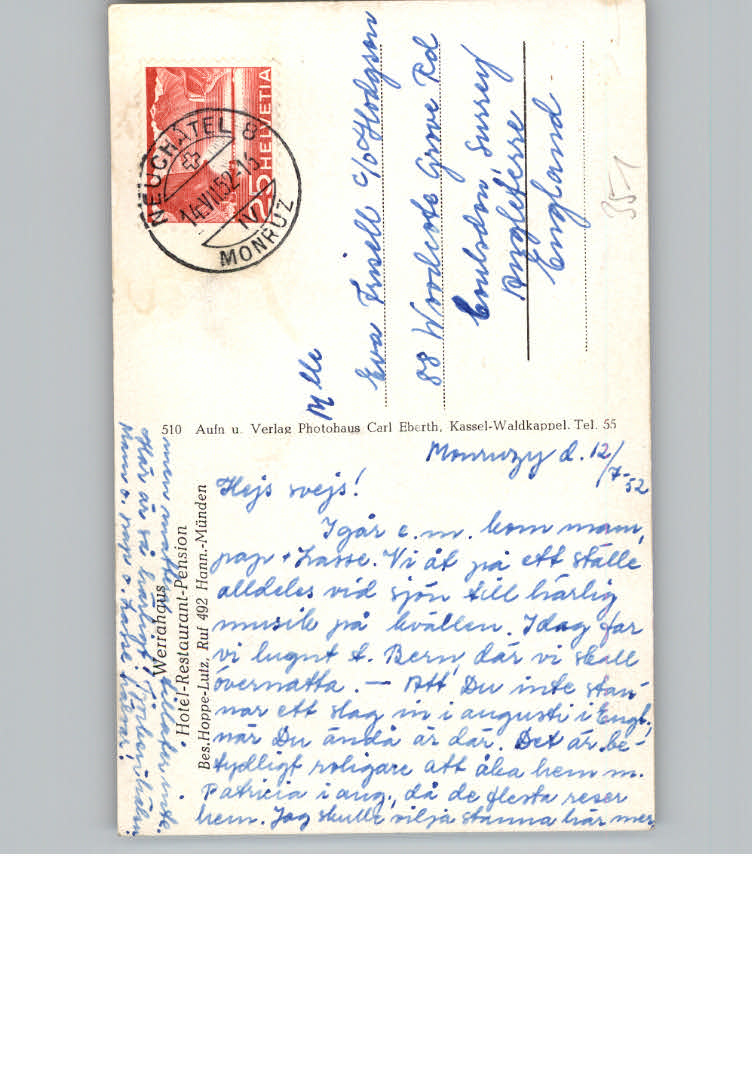 HELVETIA
25
NEUCHÂTEL 8
14.VII.52-13
IV
MONRUZ
Mlle
Eva Frisell c/o Hodgson
88 Woodcote Grove Rd
Coulsdon, Surrey
Angleterre
England
35-1
510 Aufn u. Verlag Photohaus Carl Eberth, Kassel-Waldkappel. Tel. 55
Werrahaus
Hotel-Restaurant-Pension
Bes. Hoppe-Lutz, Ruf 492 Hann.-Münden
d. 12/7-52
Hejs svejs!
Igår e.m. kom mam,
pap + Lasse. Vi åt på ett ställe
alldeles vid sjön till härlig
musik på kvällen. Idag far
vi lugnt t. Bern, där vi skall
övernatta. — Att Du inte stan-
nar ett slag in i augusti i Engl.,
när Du ändå är där. Det är be-
tydligt roligare att åka hem m.
Patricia i aug., då de flesta reser
hem. Jag skulle vilja stanna här mer,
men tillåter inte.
Här är så härligt!
Mam o. pap o. Lasse hälsar!